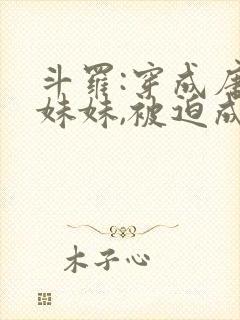 斗羅:穿成唐
妹妹,被迫成
木子心